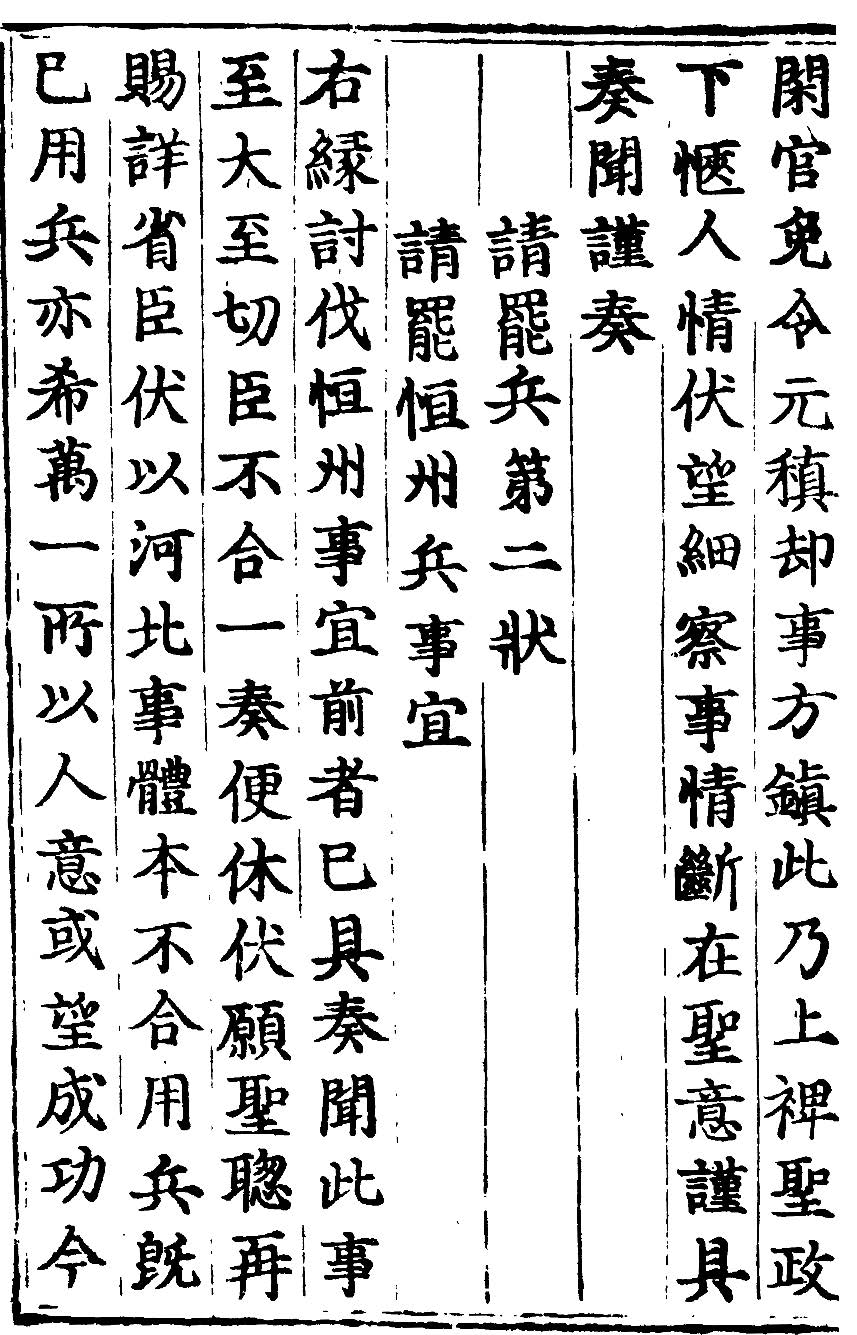 閑官免令元稹却事方鎮此乃上裨聖政
下愜人情伏望細察事情斷在聖意謹具
奏聞謹奏
請罷兵第二狀
請罷恒州兵事宜
右緣討伐恒州事宜前者已具奏聞此事
至大至切臣不合一奏便休伏願聖聰再
賜詳省臣伏以河北事體本不合用兵旣
已用兵亦希萬一所以人意或望成功今